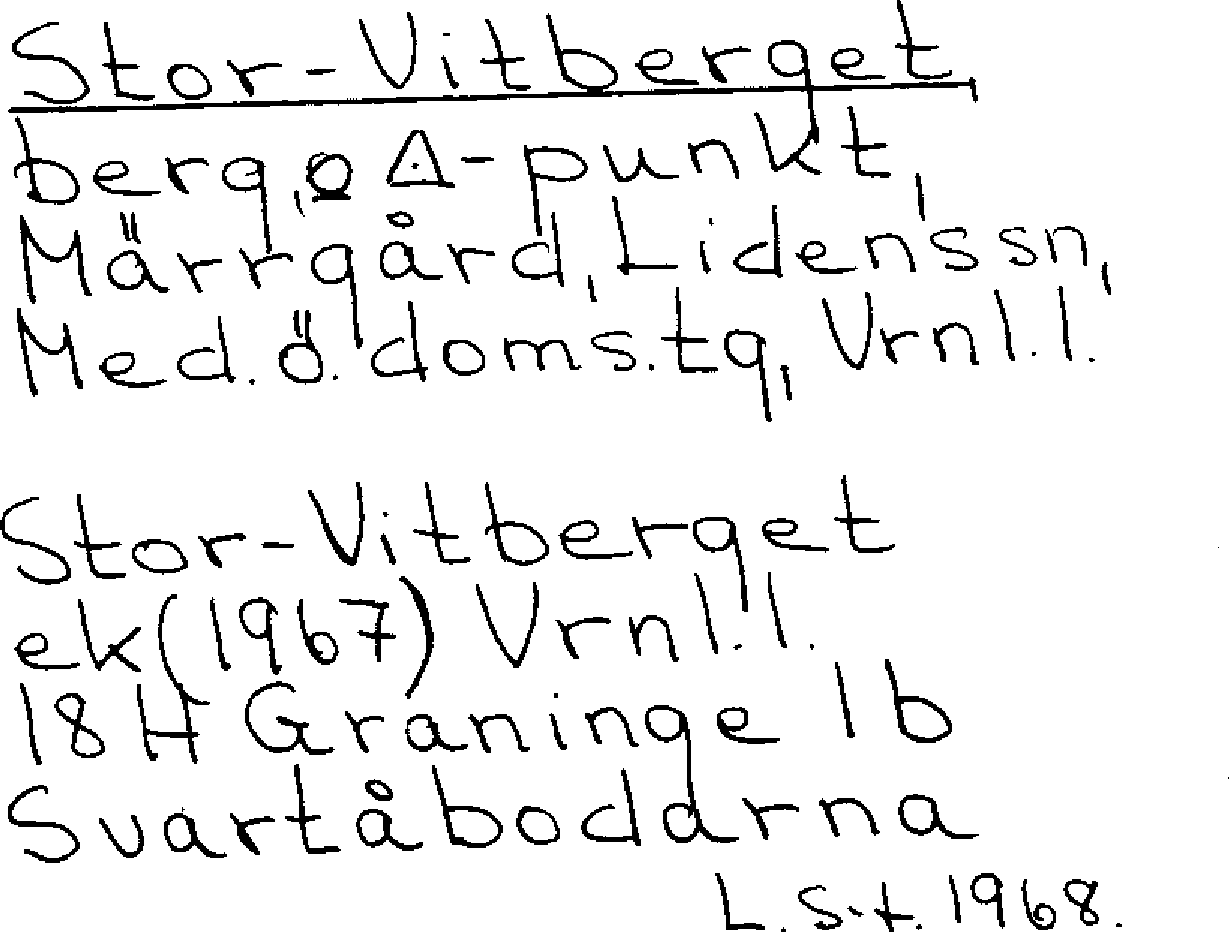 Stor-Vitberget
berg, o Δ-punkt,
Märrgård, Lidens sn,
Med. ö. doms.tg, Vrnl.l.
Stor-Vitberget
ek (1967) Vrnl.l.
18H Graninge 1b
Svartåbodarna
L.S.t. 1968.